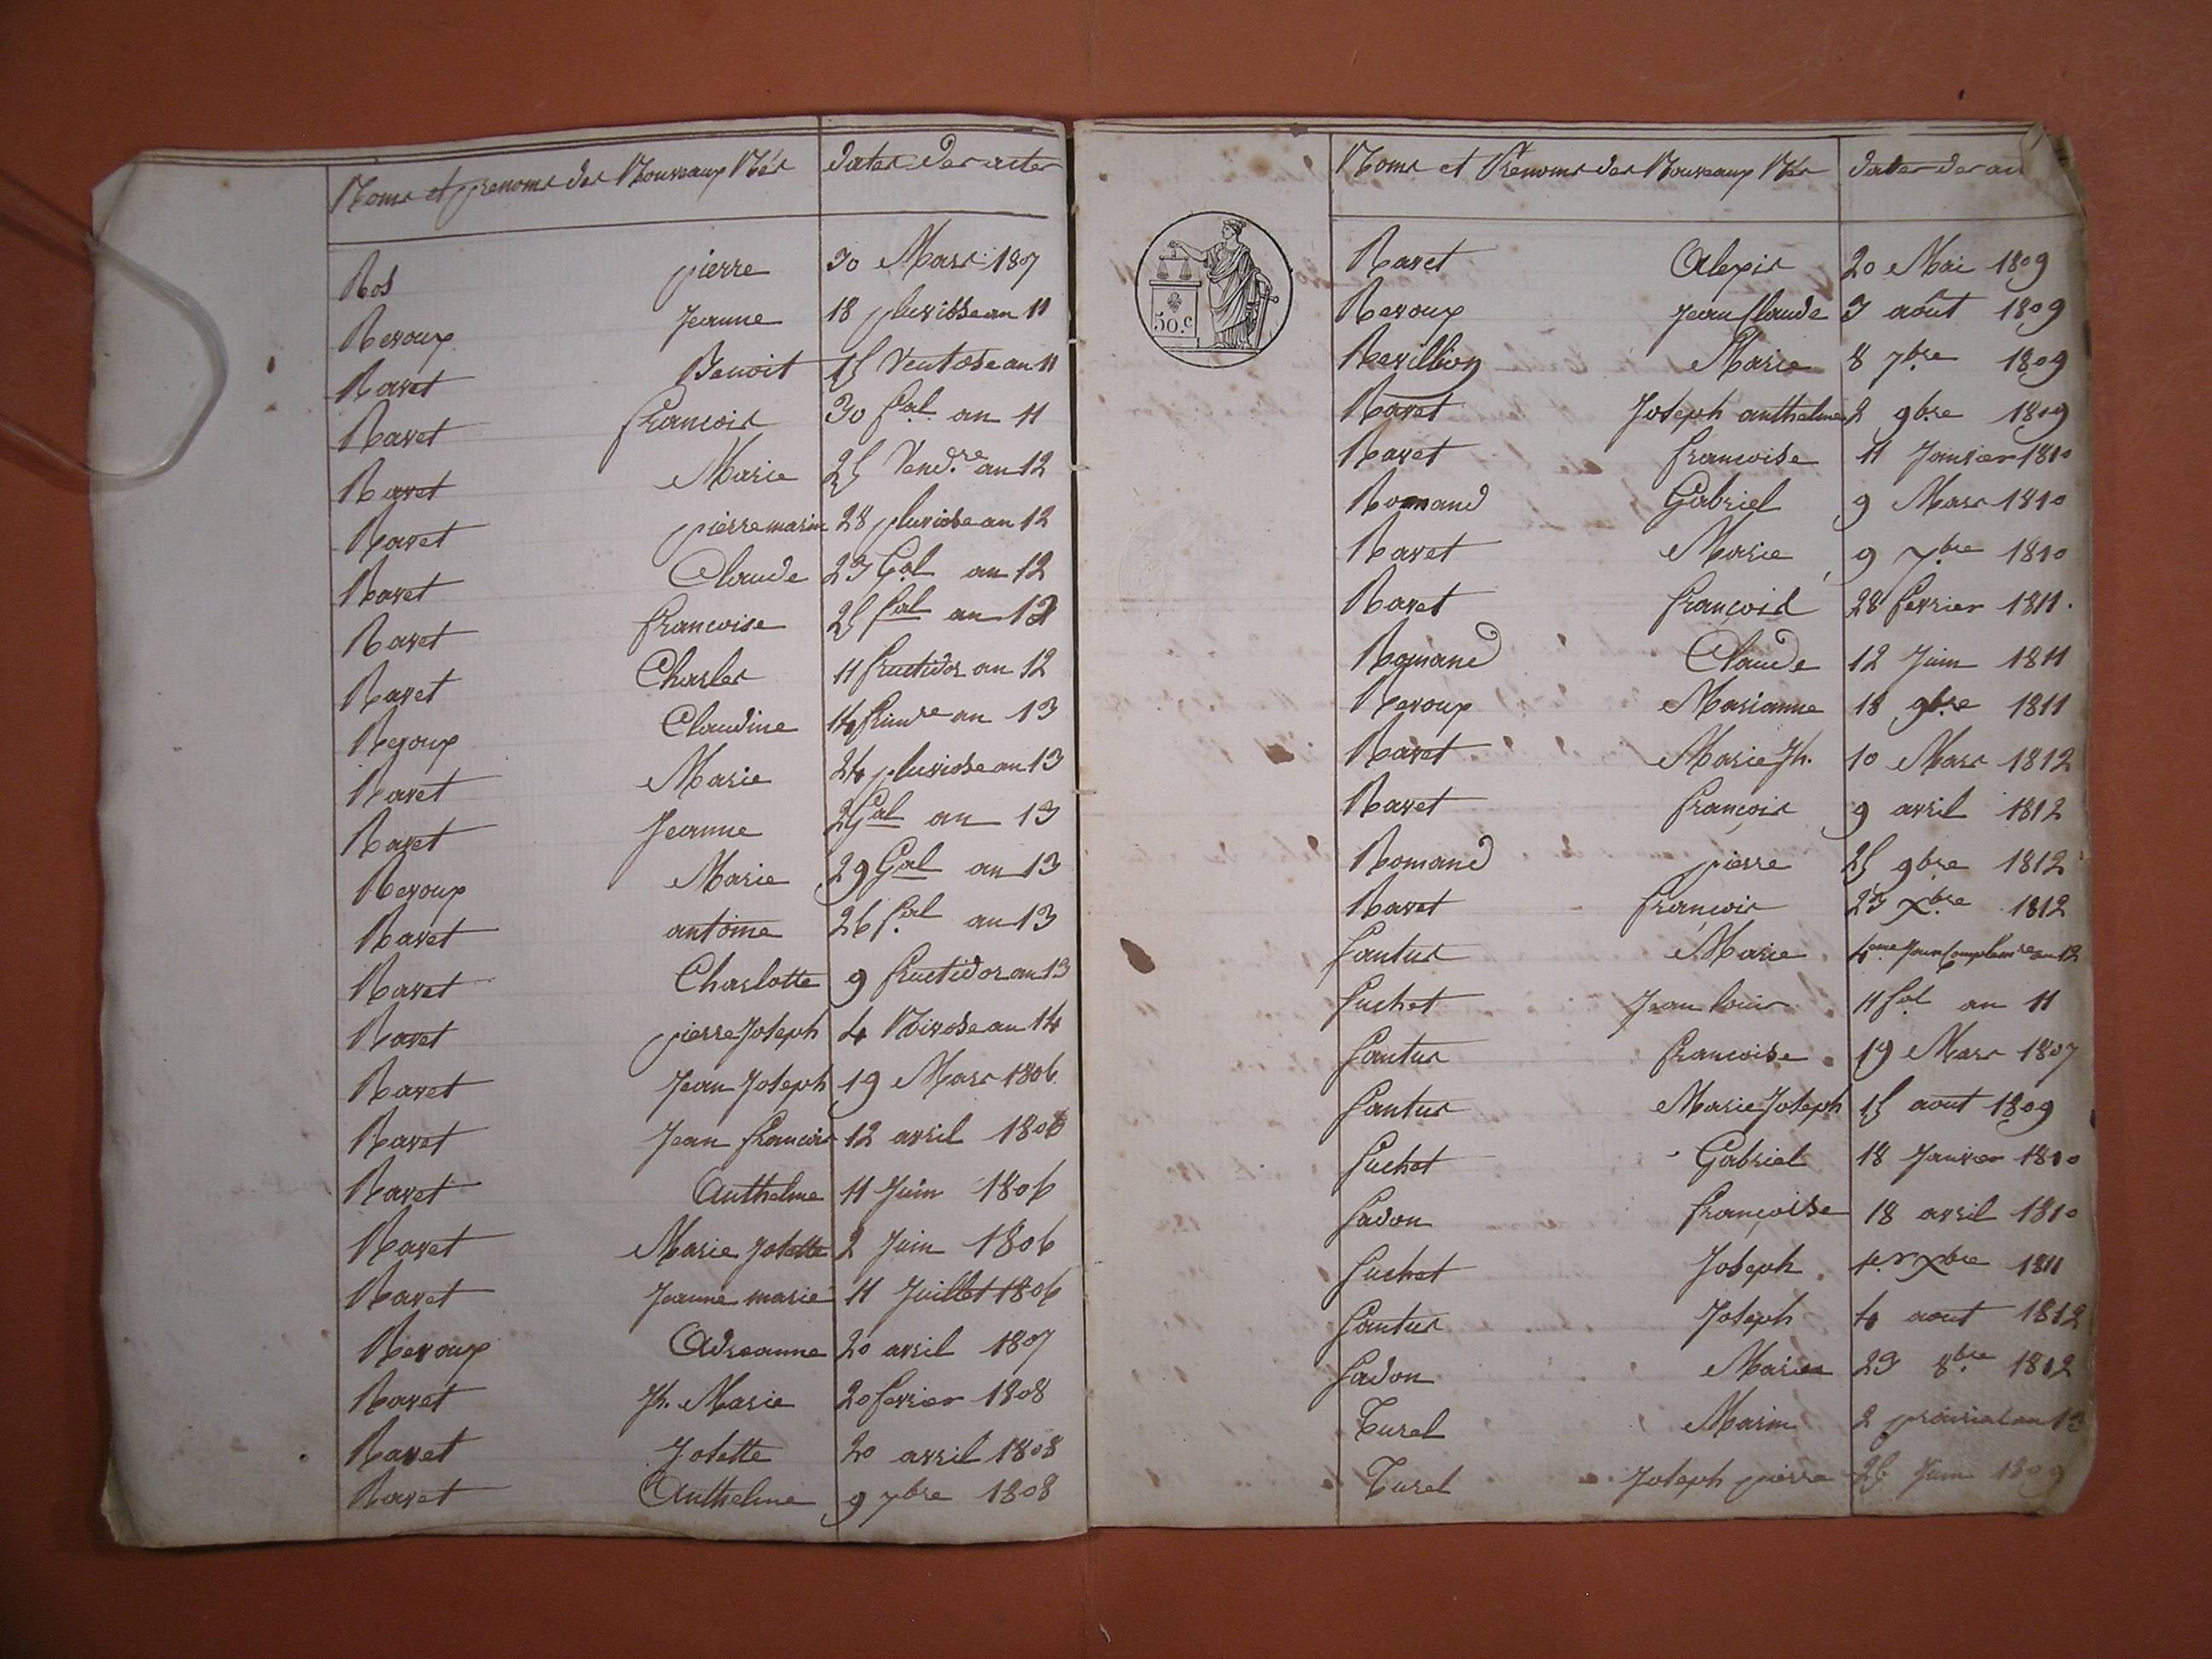 Noms et prenoms des Nouveaux Nés dates des actes
Ros pierre 30 Mars 1807
Reroux Jeanne 18 pluviose an 11
Ravet Benoit 15 Ventose an 11
Ravet francois 30 f.al an 11
Ravet Marie 25 Vend.re an 12
Ravet pierre marin 28 pluviose an 12
Ravet Claude 23 G.al an 12
Ravet francoise 25 f.al an 12
Ravet Charles 11 fructidor an 12
Reroux Claudine 14 frim.re an 13
Ravet Marie 24 pluviose an 13
Ravet Jeanne 2 G.al an 13
Reroux Marie 29 G.al an 13
Ravet antoine 26 f.al an 13
Ravet Charlotte 9 fructidor an 13
Ravet pierre Joseph 4 Nivose an 14
Ravet Jean Joseph 19 Mars 1806
Ravet Jean francois 12 avril 1806
Ravet Anthelme 11 Juin 1806
Ravet Marie Josette 2 Juin 1806
Ravet Jeanne marie 11 Juillet 1806
Reroux Adreanne 20 avril 1807
Ravet Jh. Marie 20 fevrier 1808
Ravet Josette 20 avril 1808
Ravet Anthelme 9 7bre 1808
50.c
Noms et Prenoms des Nouveaux Nés dates des
Ravet Alexis 20 Mai 1809
Reroux Jean Claude 3 août 1809
Revillion Marie 8 7bre 1809
Ravet Joseph anthelme 2 9bre 1809
Ravet francoise 11 Janvier 1810
Romand Gabriel 9 Mars 1810
Ravet Marie 9 7bre 1810
Ravet françois 28 fevrier 1811.
Romand Claude 12 Juin 1811
Reroux Marianne 18 9bre 1811
Ravet Marie Jh. 10 Mars 1812
Ravet françois 9 avril 1812
Romand pierre 25 9bre 1812
Ravet françois 23 Xbre 1812
Santus Marie 4eme Jour Complem.re an 12
Suchet Jean louis 11 f.al an 11
Santus francoise 19 Mars 1807
Santus Marie Joseph 15 aout 1809
Suchet Gabriel 18 Janvier 1810
Sadon françoise 18 avril 1810
Suchet Joseph 1er Xbre 1811
Santus Joseph 4 aout 1812
Sadon Marie 23 8bre 1812
Turel Marin 2 prairial an 13
Turel Joseph pierre 25 Juin 1809